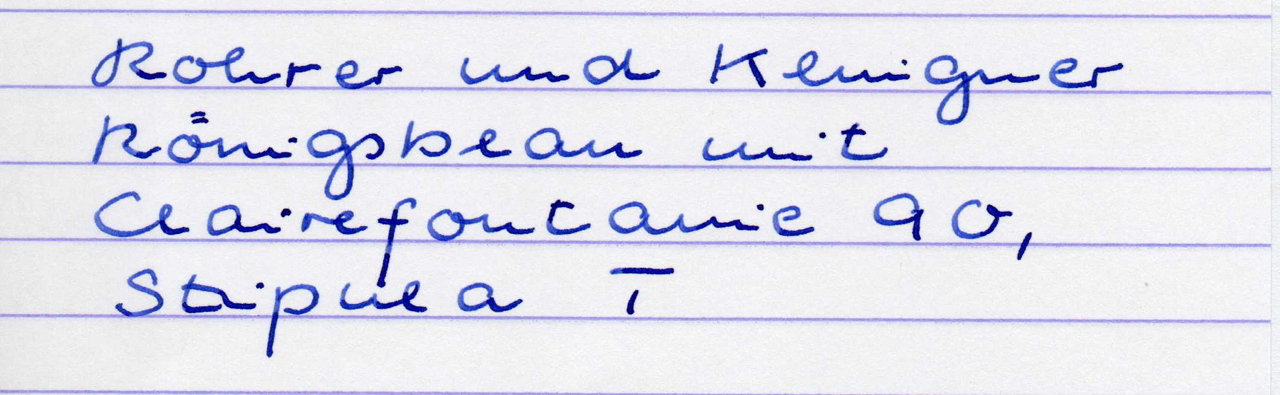 Rohrer und Klingner
Königsblau mit
Clairefontaine 90,
Stipula T